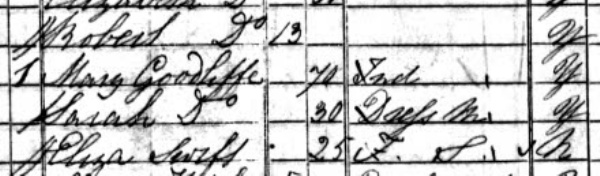 Robert Do 13 Y
1 Mary Goodliffe 70 Ind Y
Sarah Do 30 Dress M. Y
Eliza Swift 25 F. S. N